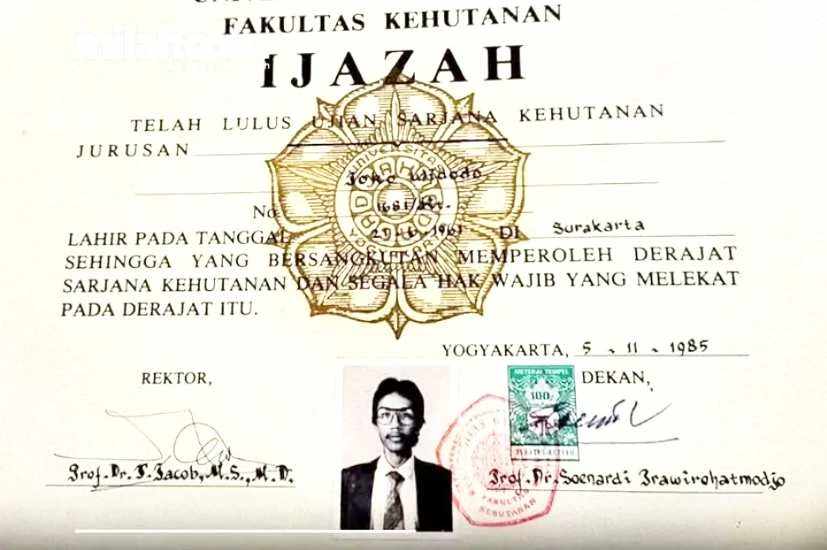 FAKULTAS KEHUTANAN
IJAZAH
TELAH LULUS UJIAN SARJANA KEHUTANAN
JURUSAN
Joko Widodo
No. 1681/KT.
LAHIR PADA TANGGAL 21-6-1961 DI Surakarta
SEHINGGA YANG BERSANGKUTAN MEMPEROLEH DERAJAT
SARJANA KEHUTANAN DAN SEGALA HAK WAJIB YANG MELEKAT
PADA DERAJAT ITU.
YOGYAKARTA, 5 - 11 - 1985
REKTOR,
DEKAN,
METERAI TEMPEL
100
Prof. Dr. T. Jacob, M.S., M.D.
Prof. Dr. Soenardi Prawirohatmodjo
FAKULTAS
KEHUTANAN
UNIVERSITAS